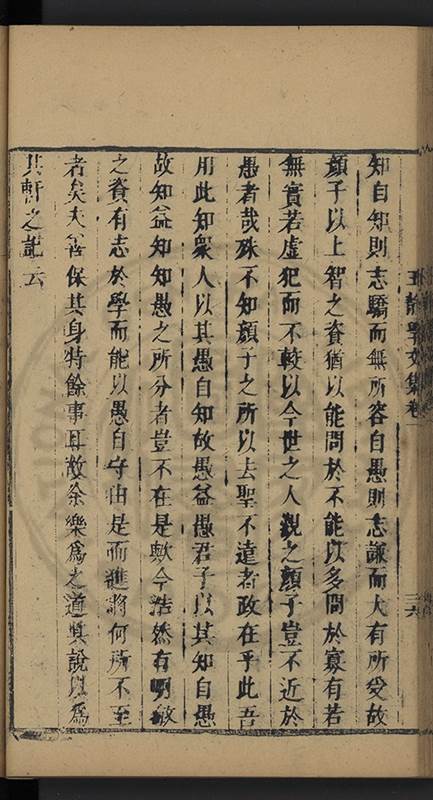 知自知則志驕而無所容自愚則志謙而大有所受故
顏子以上智之資猶以能問於不能以多問於寡有若
無實若虛犯而不較以今世之人觀之顏子豈不近於
愚者哉殊不知顏子之所以去聖不遠者政在乎此吾
用此知衆人以其愚自知故愚益愚君子以其知自愚
故知益知知愚之所分者豈不在是歟今浩然有明敏
之資有志於學而能以愚自守由是而進將何所不至
者矣夫善保其身特餘事耳故余樂爲之道其說以爲
其軒之記云
王靜學文集卷一
三六